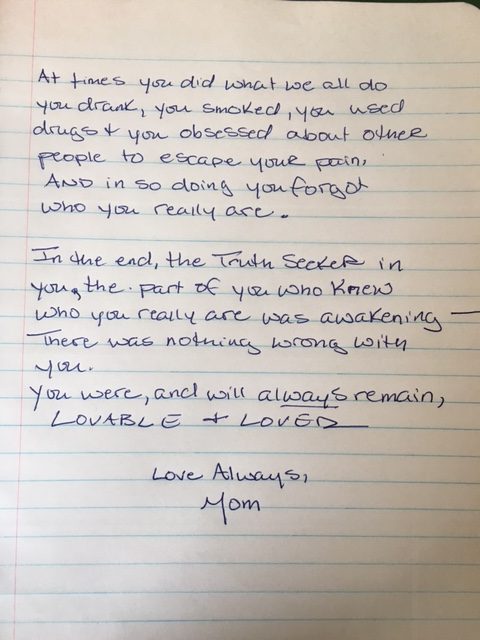 At times you did what we all do
you drank, you smoked, you used
drugs & you obsessed about other
people to escape your pain.
AND in so doing you forgot
who you really are.
In the end, the Truth Seeker in
you, the part of you who knew
who you really are was awakening —
There was nothing wrong with
you.
You were, and will always remain,
LOVABLE + LOVED
Love Always,
Mom